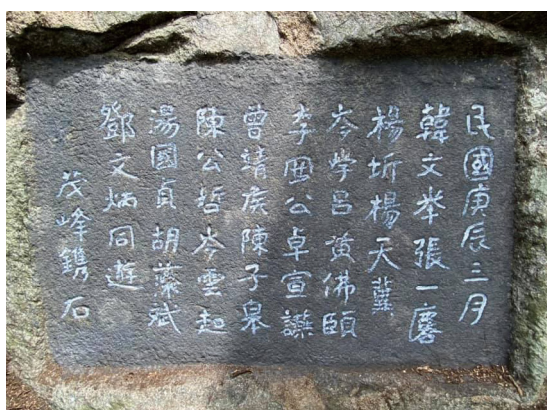 民國庚辰三月
韓文举張一麐
楊圻楊天驥
岑學呂黃佛頤
李鳳公卓宣讌
曾靖侯陳子皋
陳公哲岑雲起
湯國貞胡藻斌
鄧文炳同遊
茂峰鐫石